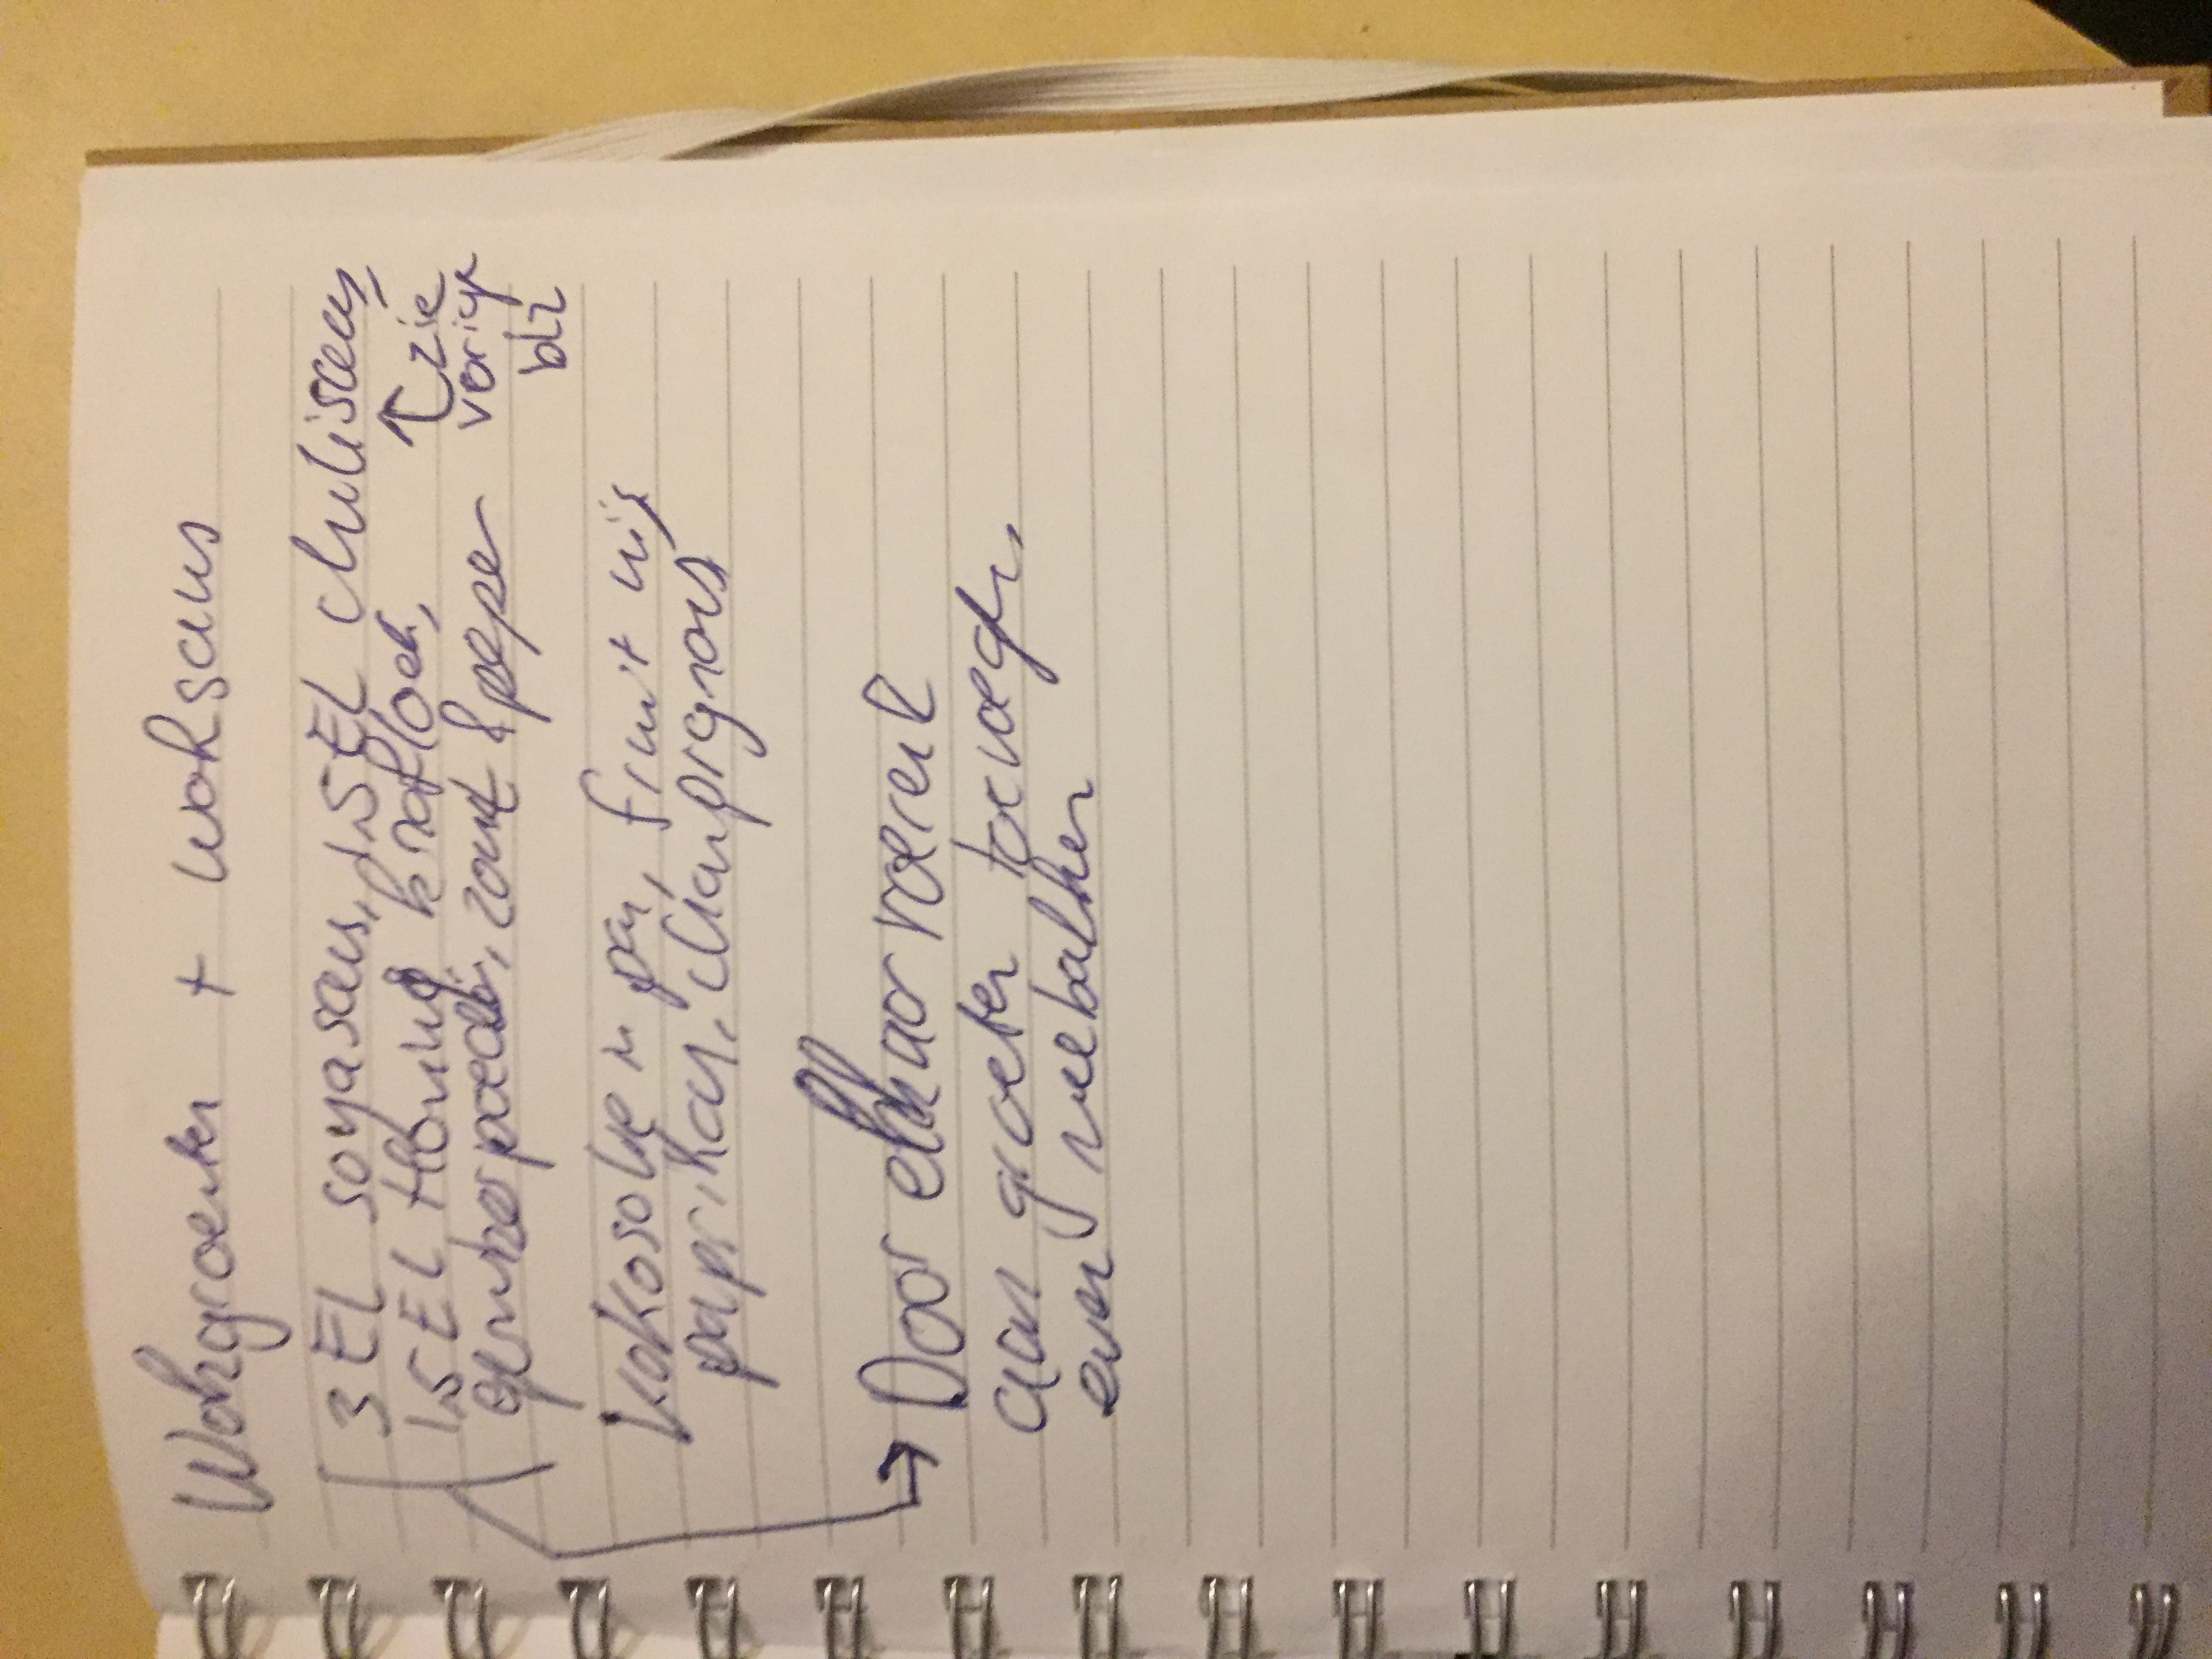 Wokgroenten + woksaus
3 EL soyasaus, 1,5 EL chilisaus,
1,5 EL Honing knoflook,
↑ zie
gemberpoeder, zout & peper
vorige
blz
kokosolie in pan, fruit ui,
paprikas, champignons
→ Door elkaar roeren &
aan groeten toevoegen,
even meebakken